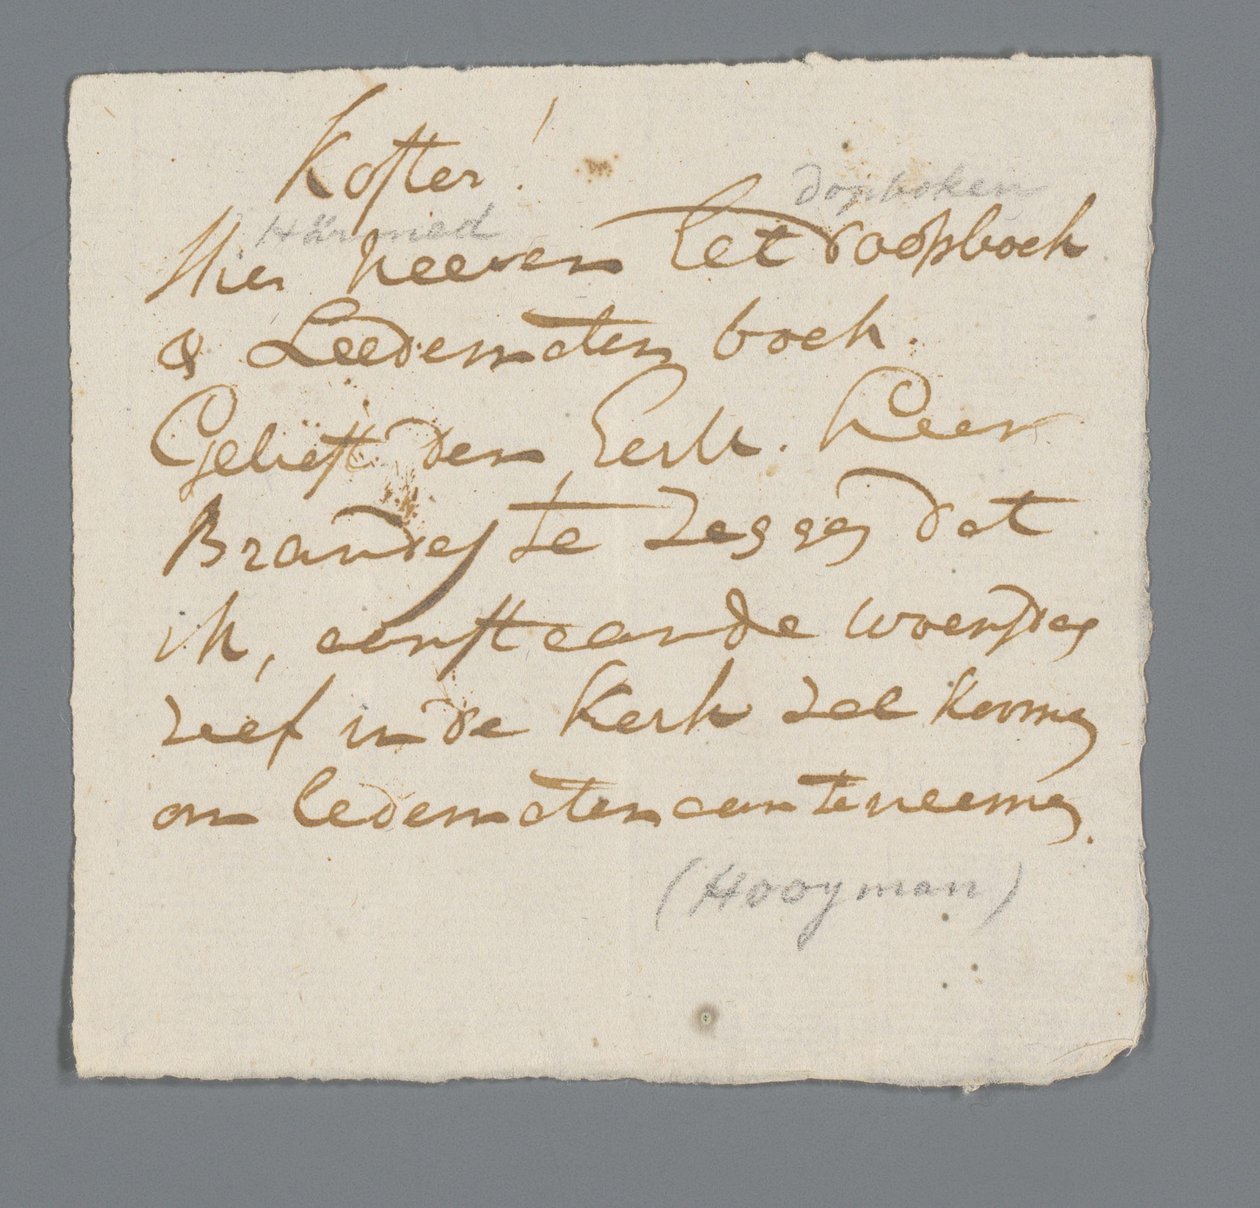 Koster!
Härmed dopboken
Hier neeven het doopboek
& Leedematen boek.
Gelieft den Eerw. heer
Brandes te zeggen dat
ik, aenstaande woensdag
zelf in de kerk zal koomen
om ledematen aan te neemen.
(Hooyman)